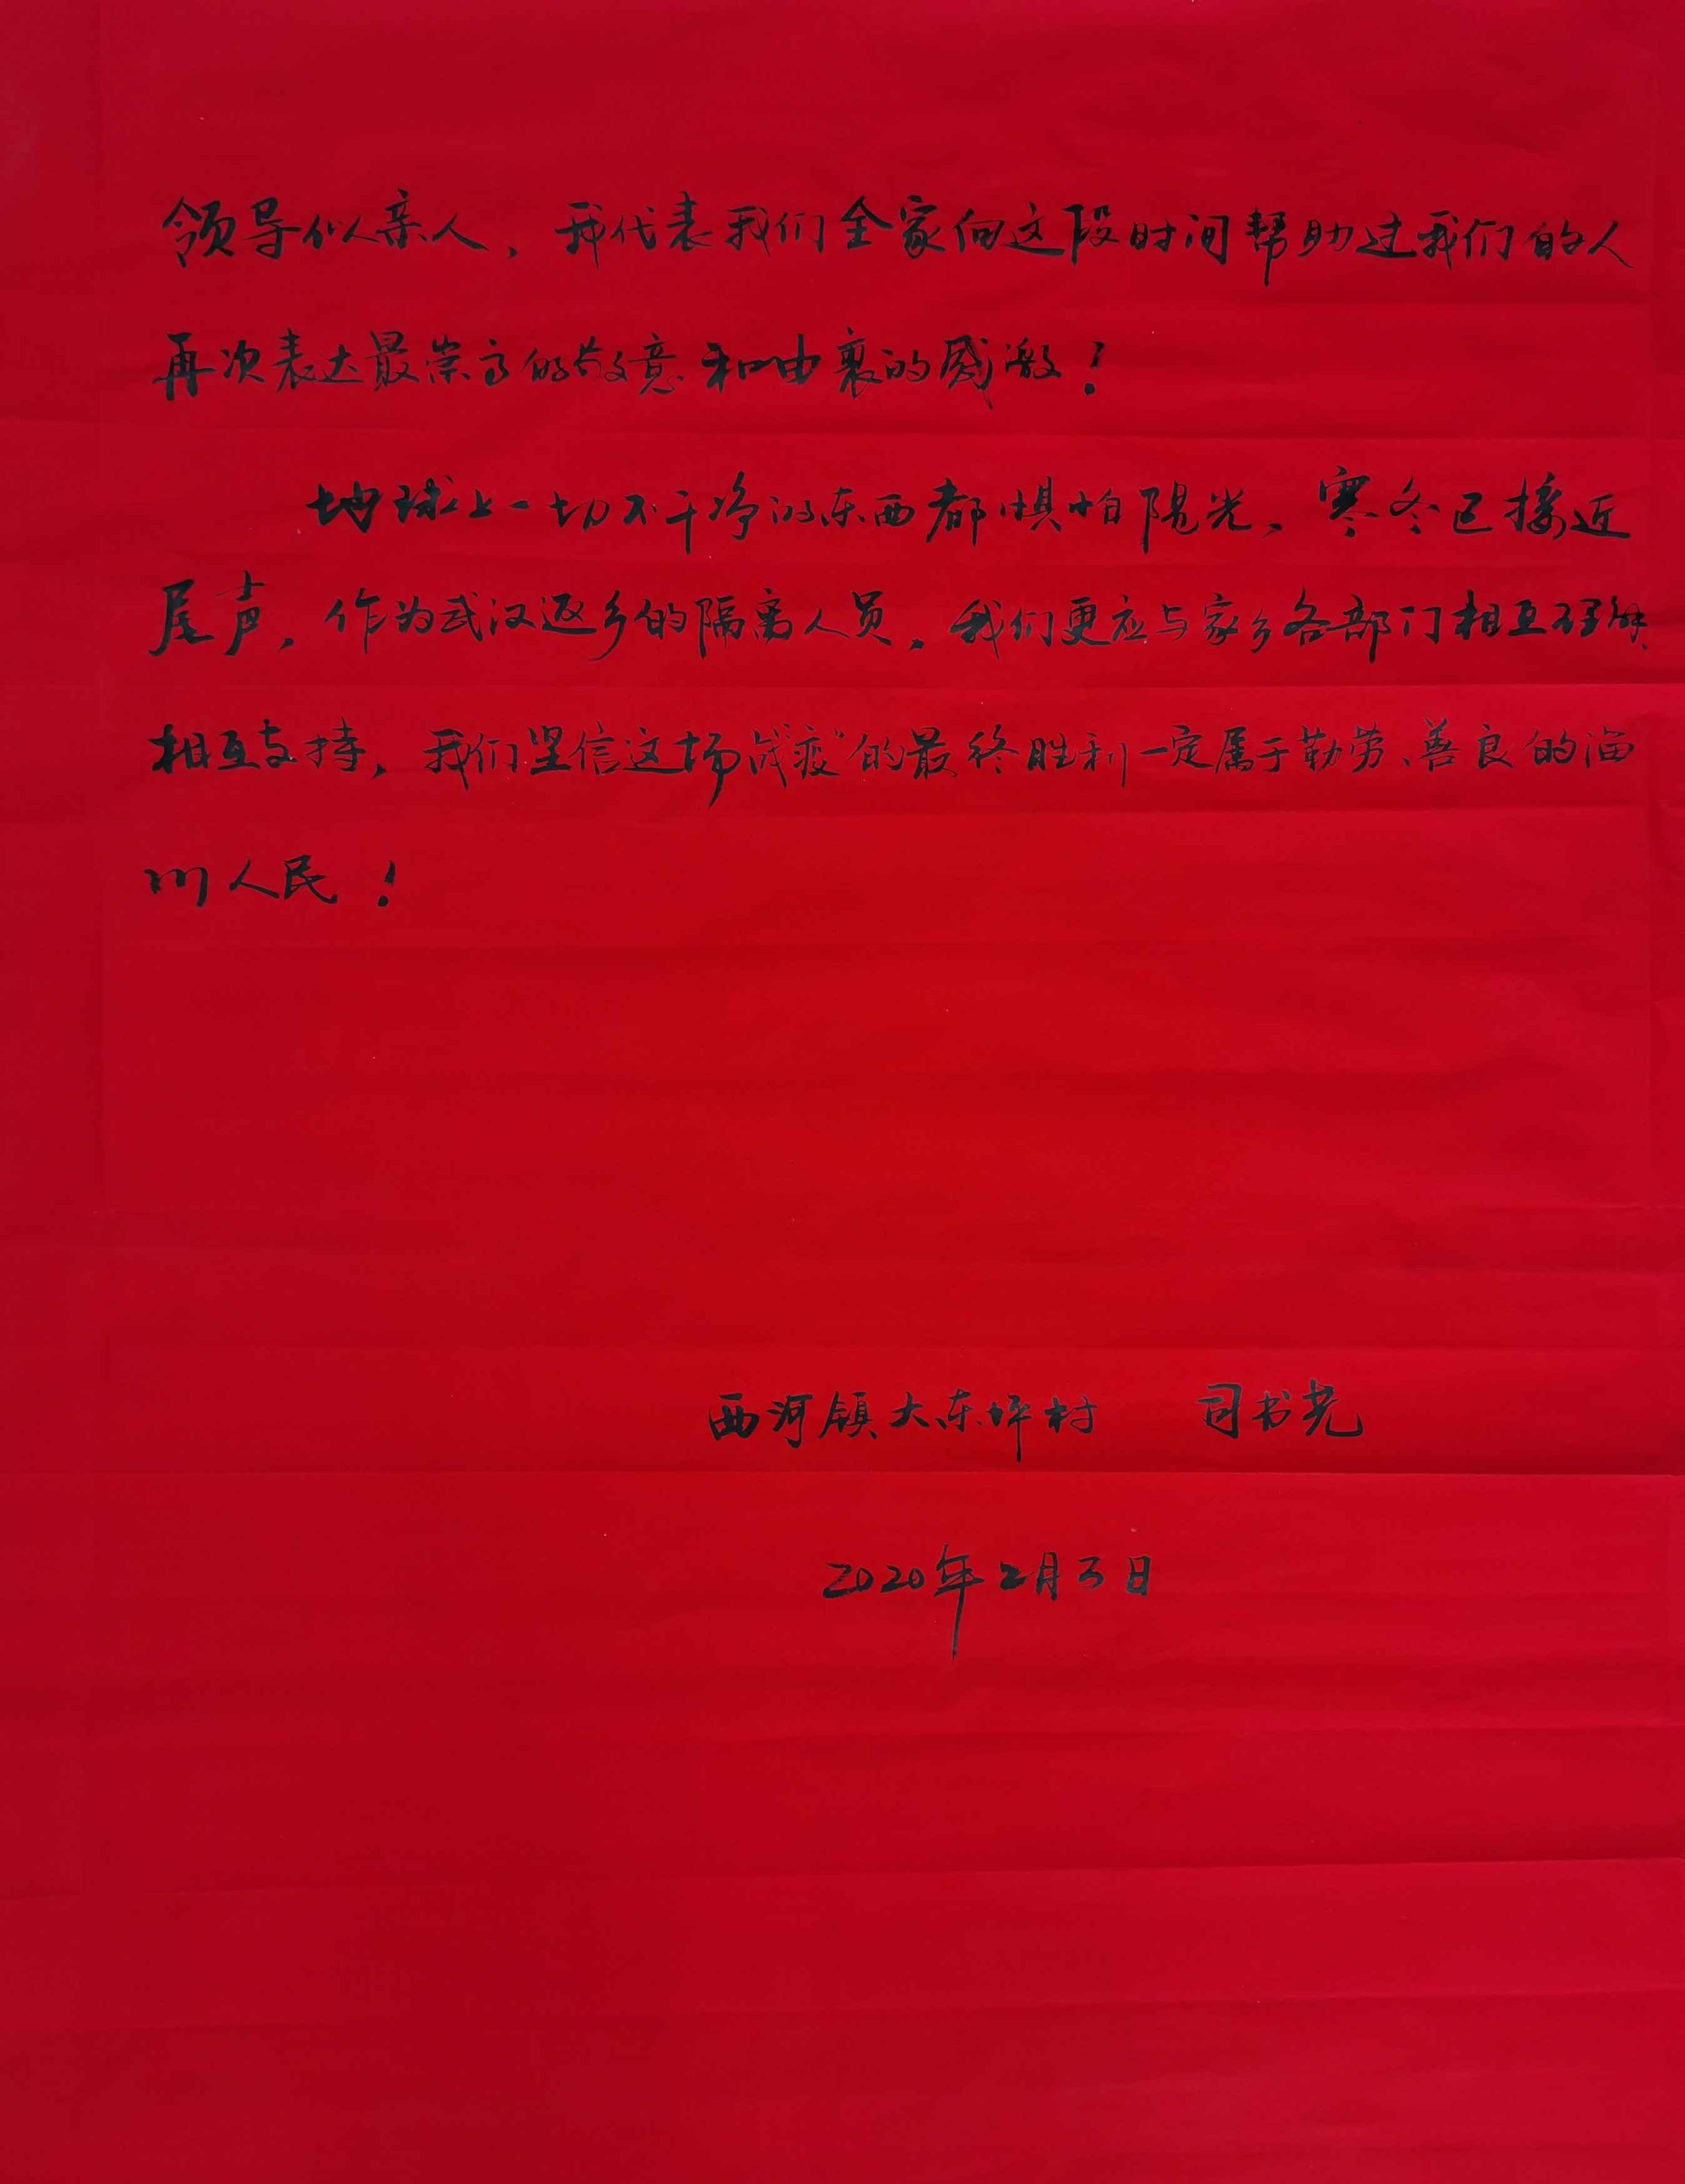 领导似亲人，我代表我们全家向这段时间帮助过我们的人
再次表达最崇高的敬意和由衷的感激！
地球上一切不干净的东西都惧怕陽光，寒冬已接近
尾声，作为武汉返乡的隔离人员，我们更应与家乡各部门相互理解、
相互支持，我们坚信这场战“疫”的最终胜利一定属于勤劳、善良的淄
川人民！
西河镇大东坪村 司书尧
2020年2月3日